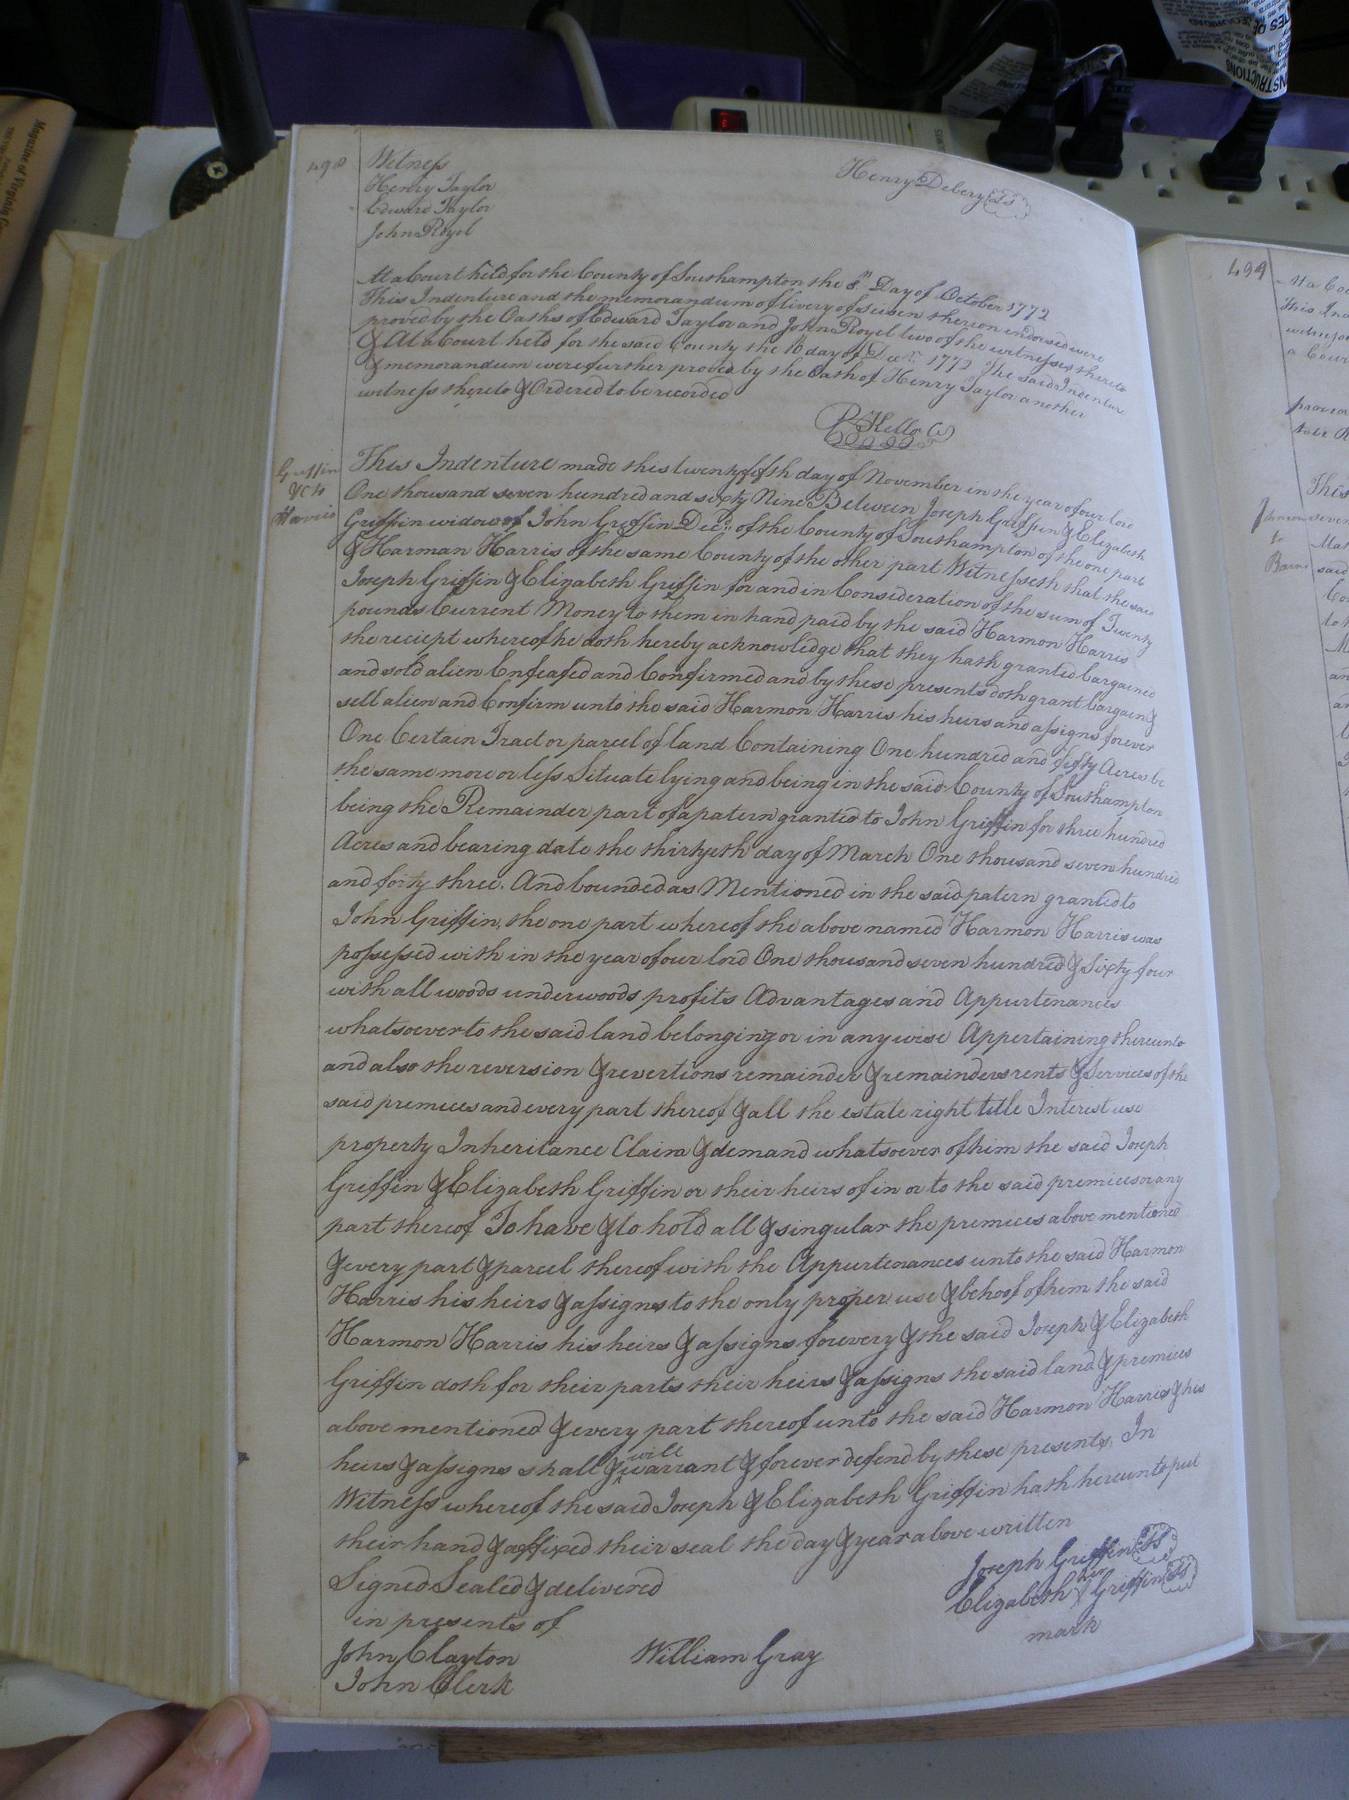 498
Witness
Henry Taylor
Edward Taylor
John Royol
Henry Debery Ls
At a Court held for the County of Southampton the 8th Day of October 1772
This Indenture and the memorandum of livery of seisen thereon endorsed were
proved by the Oaths of Edward Taylor and John Royol two of the witnesses thereto
& At a Court held for the said County the 10 day of Decr 1772 The said Indenture
& memorandum were further proved by the Oath of Henry Taylor another
witness thereto & Ordered to be recorded
Griffin
Harris
This Indenture made this twenty fifth day of November in the year of our lord
One thousand seven hundred and sixty Nine Between Joseph Griffin & Elizabeth
Griffin widow of John Griffin Decd. of the County of Southampton of the one part
& Harman Harris of the same County of the other part Witnesseth that the said
Joseph Griffin & Elizabeth Griffin for and in Consideration of the sum of Twenty
pounds Current Money to them in hand paid by the said Harmon Harris
the reciept whereof he doth hereby acknowledge that they hath granted bargained
and sold alien Enfeafed and Confirmed and by these presents doth grant bargain &
sell alien and Confirm unto the said Harmon Harris his heirs and assigns forever
One Certain Tract or parcel of land Containing One hundred and fifty Acres be
the same more or less Situate lying and being in the said County of Southampton
being the Remainder part of a patern granted to John Griffin for three hundred
Acres and bearing date the thirtyeth day of March One thousand seven hundred
and forty three. And bounded as Mentioned in the said patern granted to
John Griffin, the one part whereof the above named Harmon Harris was
possessed with in the year of our lord One thousand seven hundred & Sixty four
with all woods underwoods profits Advantages and Appurtenances
whatsoever to the said land belonging or in any wise Appertaining thereunto
and also the reversion & revertions remainder & remainders rents & Services of the
said premices and every part thereof & all the estate right title Interest use
property Inheritance Claim & demand whatsoever of him the said Joseph
Griffin & Elizabeth Griffin or their heirs of in or to the said premices or any
part thereof To have & to hold all & singular the premices above mentioned
& every part & parcel thereof with the Appurtenances unto the said Harmon
Harris his heirs & assigns to the only proper use & behoof of him the said
Harmon Harris his heirs & assigns forevery & the said Joseph & Elizabeth
Griffin doth for their parts their heirs & assigns the said land & premices
above mentioned & every part thereof unto the said Harmon Harris & his
heirs & assigns shall & will warrant & forever defend by these presents, In
Witness whereof the said Joseph & Elizabeth Griffin hath hereunto put
their hand & affixed their seal the day & year above written
Signed Sealed & delivered
in presents of
Joseph Griffin Ls
her
Elizabeth X Griffin Ls
mark
John Clayton
William Gray
John Clerk
499
At a Cou
This Ind
witness
a Cour
proved
to be R
This
Johnson
to
Barns
seven
said